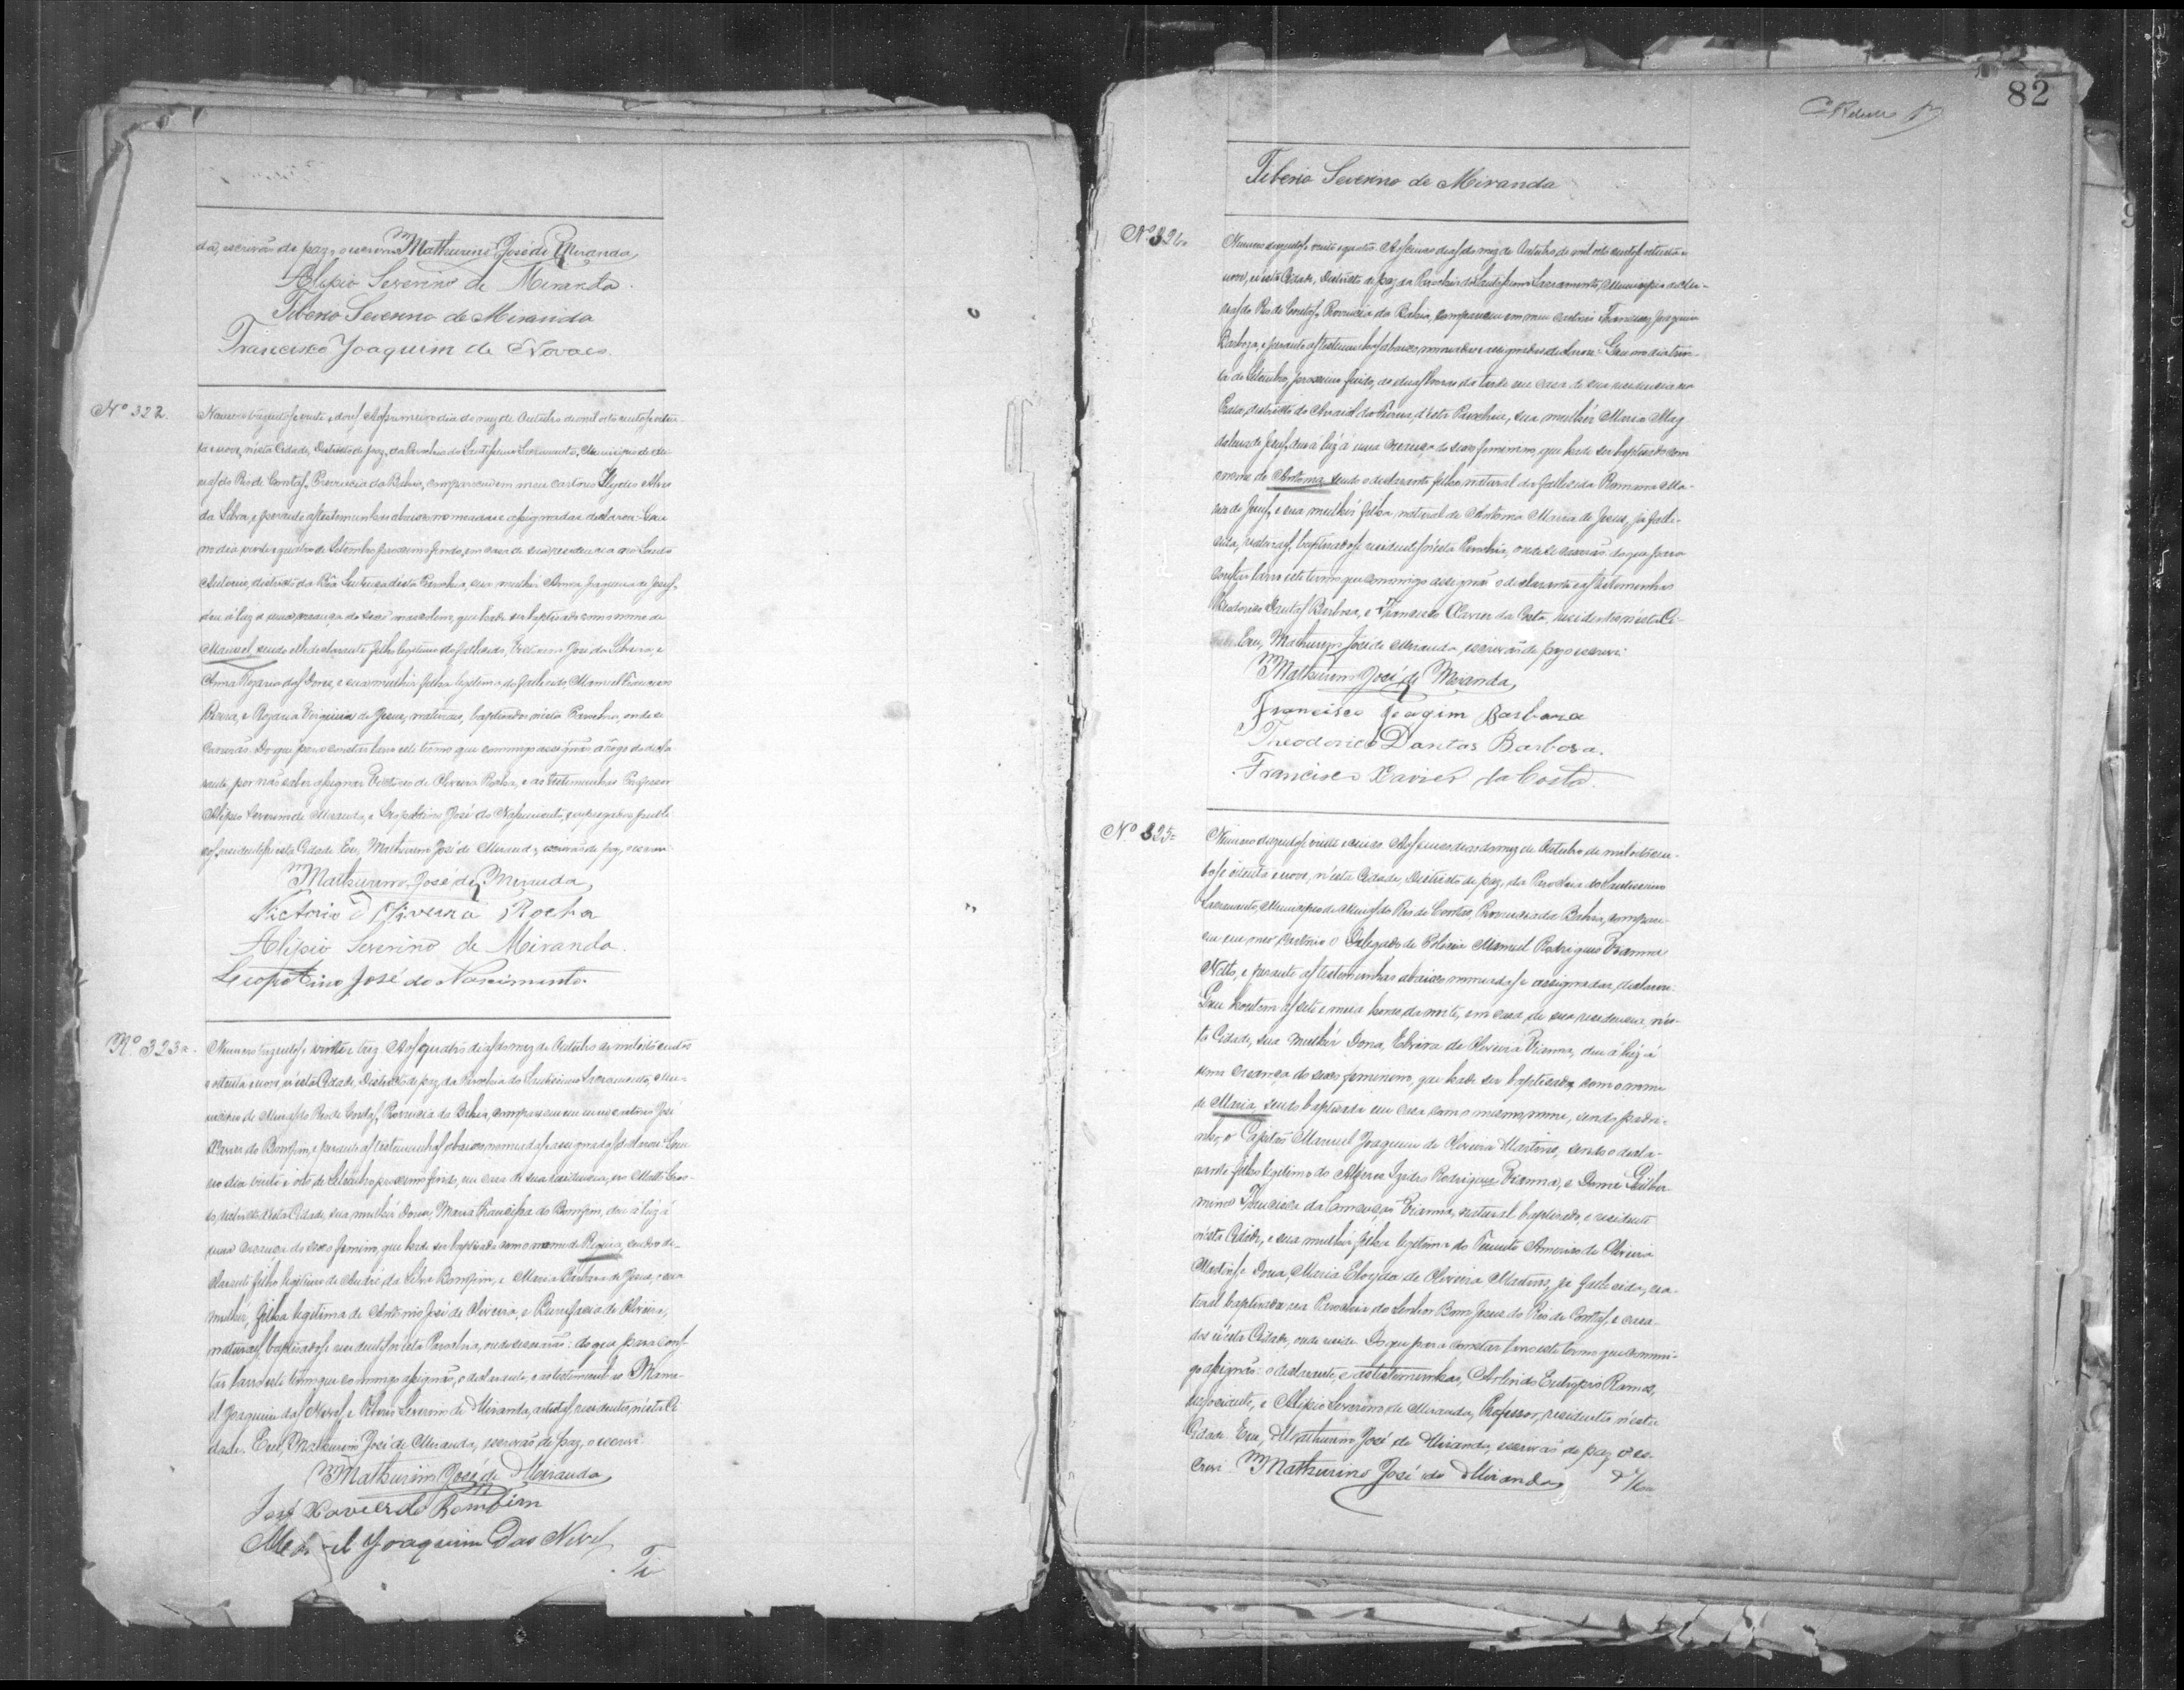 82
da, escrivão de paz, o escrevi Mathurino José de Miranda
Alipio Severino de Miranda.
Tiberio Severino de Miranda
Francisco Joaquim de Novaes.
Nº 322.
Numero trezentos e vinte e dous. Aos primeiro dia do mez de Outubro de mil oito centos e oiten-
ta e nove, nesta Cidade, Districto de paz, da Parochia do Santissimo Sacramento, Municipio de Mi-
nas do Rio de Contas, Provincia da Bahia, compareceu em meu cartorio
da Silva, e perante as testemunhas abaixo nomeadas e assignadas declarou: Que
no dia vinte e quatro de Setembro proximo findo, em casa de sua residencia no Santo
Antonio, districto da desta Parochia, sua mulher Anna Joaquina de Jesus,
deu á luz a uma creança do sexo masculino, que hade ser baptisado com o nome de
Manoel, sendo elle declarante filho legitimo do fallecido José da Silveira, e
Anna das Dores, e sua mulher filha legitima do fallecido Manuel Francisco
e de Jesus, naturaes, baptisados nesta Parochia, onde se
casarão. Do que para constar lavro este termo que commigo assignão a rogo do decla-
rante, por não saber assignar Victorio de Oliveira Rocha, e as testemunhas Professor
Alipio Severino de Miranda, e Leopoldino José do Nascimento, empregados publi-
cos, residentes nesta Cidade. Eu, Mathurino José de Miranda, escrivão de paz, o escrevi.
Mathurino José de Miranda
Victorio d'Oliveira Rocha
Alipio Severino de Miranda.
Leopoldino José do Nascimento.
Nº 323
Numero trezentos e vinte e trez. Aos quatro dias do mez de Outubro de mil oito centos
e oitenta e nove, n'esta Cidade, Districto de paz, da Parochia do Santissimo Sacramento, Mu-
nicipio de Minas do Rio de Contas, Provincia da Bahia, compareceu em meu cartorio José
Xavier do Bomfim, e perante as testemunhas abaixo nomeadas e assignadas declarou: Que
no dia vinte e oito de Setembro proximo findo, em casa de sua residencia, no Matto Gros-
so, districto desta Cidade, sua mulher Dona, Maria Francisca do Bomfim, deu á luz á
uma creança do sexo feminino, que hade ser baptisada com o nome de Regina, sendo o de-
clarante filho legitimo de André da Silva Bomfim, e Maria Barbara de Jesus, e sua
mulher, filha legitima de Antonio José de Oliveira, e Bonifacia de Oliveira,
naturaes, baptisados e residentes n'esta Parochia, onde se casarão: do que para cons-
tar lavro este termo que commigo assignão, o declarante, e as testemunhas Mano-
el Joaquim das Neves, e Tiberio Severino de Miranda, artistas, residentes n'esta Ci-
dade. Eu, Mathurino José de Miranda, escrivão de paz, o escrevi.
Mathurino José de Miranda
José Xavier do Bomfim
Manoel Joaquim Das Neves
Ti
Tiberio Severino de Miranda
Nº 324
Numero trezentos e vinte e quatro. Aos cinco dias do mez de Outubro de mil oito centos e oitenta e
nove, n'esta Cidade, Districto de paz da Parochia do Santissimo Sacramento, Municipio de Mi-
nas do Rio de Contas, Provincia da Bahia, compareceu em meu cartorio Francisco Joaquim
Barboza, e perante as testemunhas abaixo nomeadas e assignadas declarou: Que no dia trin-
ta de Setembro, proximo findo, as duas horas da tarde em casa de sua residencia no
districto do Arraial do d'esta Parochia, sua mulher Maria Mag
dalena de Jesus, deu a luz á uma creança do sexo feminino, que hade ser baptisada com
o nome de Antonia, sendo o declarante filho natural da fallecida Romana Ma-
ria de Jesus, e sua mulher filha natural de Antonia Maria de Jesus, já falle-
cida, naturaes, baptisados e residentes n'esta Parochia, onde se casarão: do que para
constar lavro este termo que commigo assignão o declarante e as testemunhas
Theodorico Dantas Barbosa, e Francisco Xavier da Costa, residentes n'esta Ci-
dade. Eu, Mathurino José de Miranda, escrivão de paz o escrevi.
Mathurino José de Miranda
Francisco Joaqim Barboza
Theodorico Dantas Barbosa.
Francisco Xavier da Costa.
Nº 325
Numero trezentos e vinte e cinco. Aos cinco dias do mez de Outubro de mil oito cen-
tos e oitenta e nove, n'esta Cidade, Districto de paz, da Parochia do Santissimo
Sacramento, Municipio de Minas do Rio de Contas, Provincia da Bahia, compare-
ceu em meu cartorio o Delegado de Policia Manuel Rodrigues Vianna
Netto, e perante as testemunhas abaixo nomeadas e assignadas, declarou:
Que hontem as sete e meia horas da noite, em casa de sua residencia, n'es-
ta Cidade, sua mulher Dona, Elvira de Oliveira Vianna, deu á luz á
uma creança do sexo feminino, que hade ser baptisada com o nome
de Maria, sendo baptisada em casa com o mesmo nome, sendo padri-
nho, o Capitão Manuel Joaquim de Oliveira Martins, sendo o decla-
rante filho legitimo do Alferes Izidro Rodrigues Vianna, e Dona Guilher-
mina Francisca da Conceição Vianna, natural baptisado, e residente
n'esta Cidade, e sua mulher filha legitima do Tenente Americo de Oliveira
Martins, e Dona, Maria de Oliveira Martins, já fallecida, na-
tural baptisada na Parochia do Senhor Bom Jesus do Rio de Contas, e casa-
dos n'esta Cidade, onde reside. Do que para constar lavro este termo que commi-
go assignão: o declarante, e as testemunhas, Arlindo Eutropio Ramos,
negociante, e Alipio Severino de Miranda, Professor, residentes n'esta
Cidade. Eu, Mathurino José de Miranda, escrivão de paz o es-
crevi. Mathurino José de Miranda